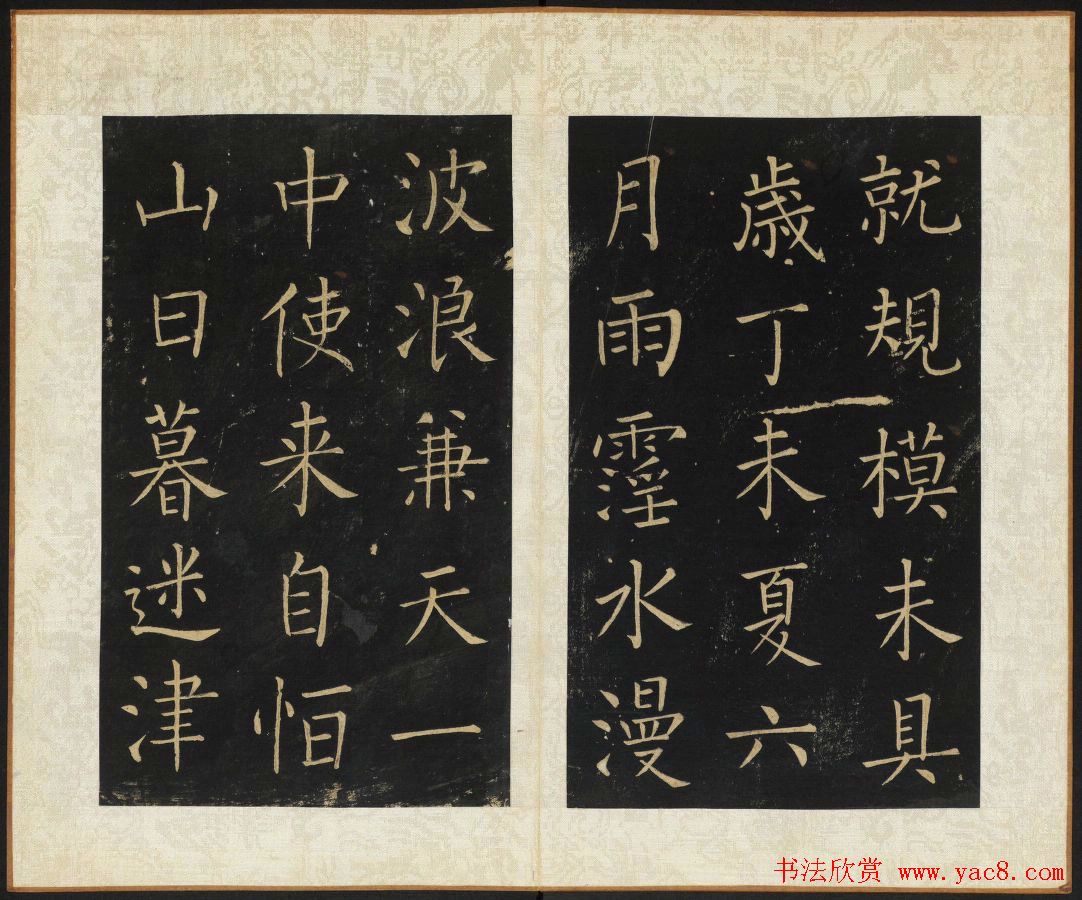 就規模未具
歲丁未夏六
月雨霪水漫
波浪兼天一
中使来自恒
山日暮迷津
书法欣赏 www.yac8.com